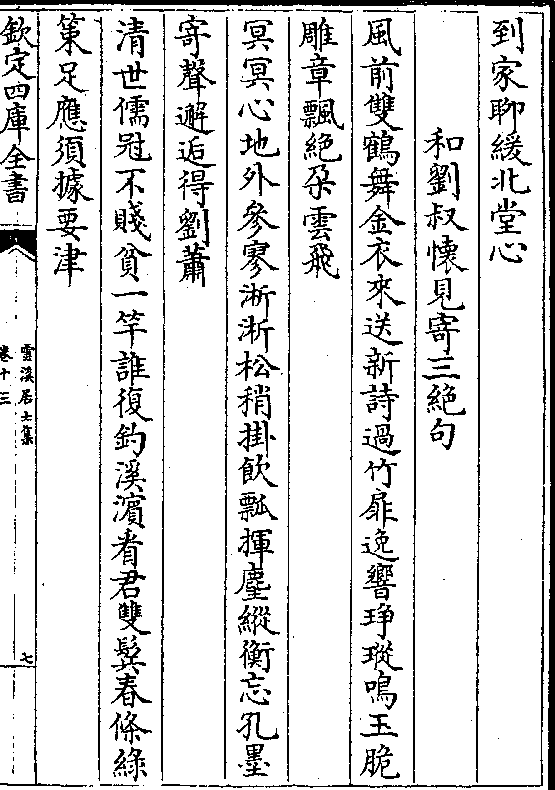 到家聊緩北堂心
和劉叔懷見寄三絶句
風前雙鶴舞金衣來送新詩過竹扉逸響琤瑽鳴玉脆
雕章飄絶朶雲飛
冥冥心地外參寥淅淅松稍掛飲瓢揮麈縱衡忘孔墨
寄聲邂逅得劉蕭
清世儒冠不賤貧一竿誰復釣溪濵看君雙鬂春條綠
策足應須據要津
欽定四庫全書
雲溪居士集
卷十三
七